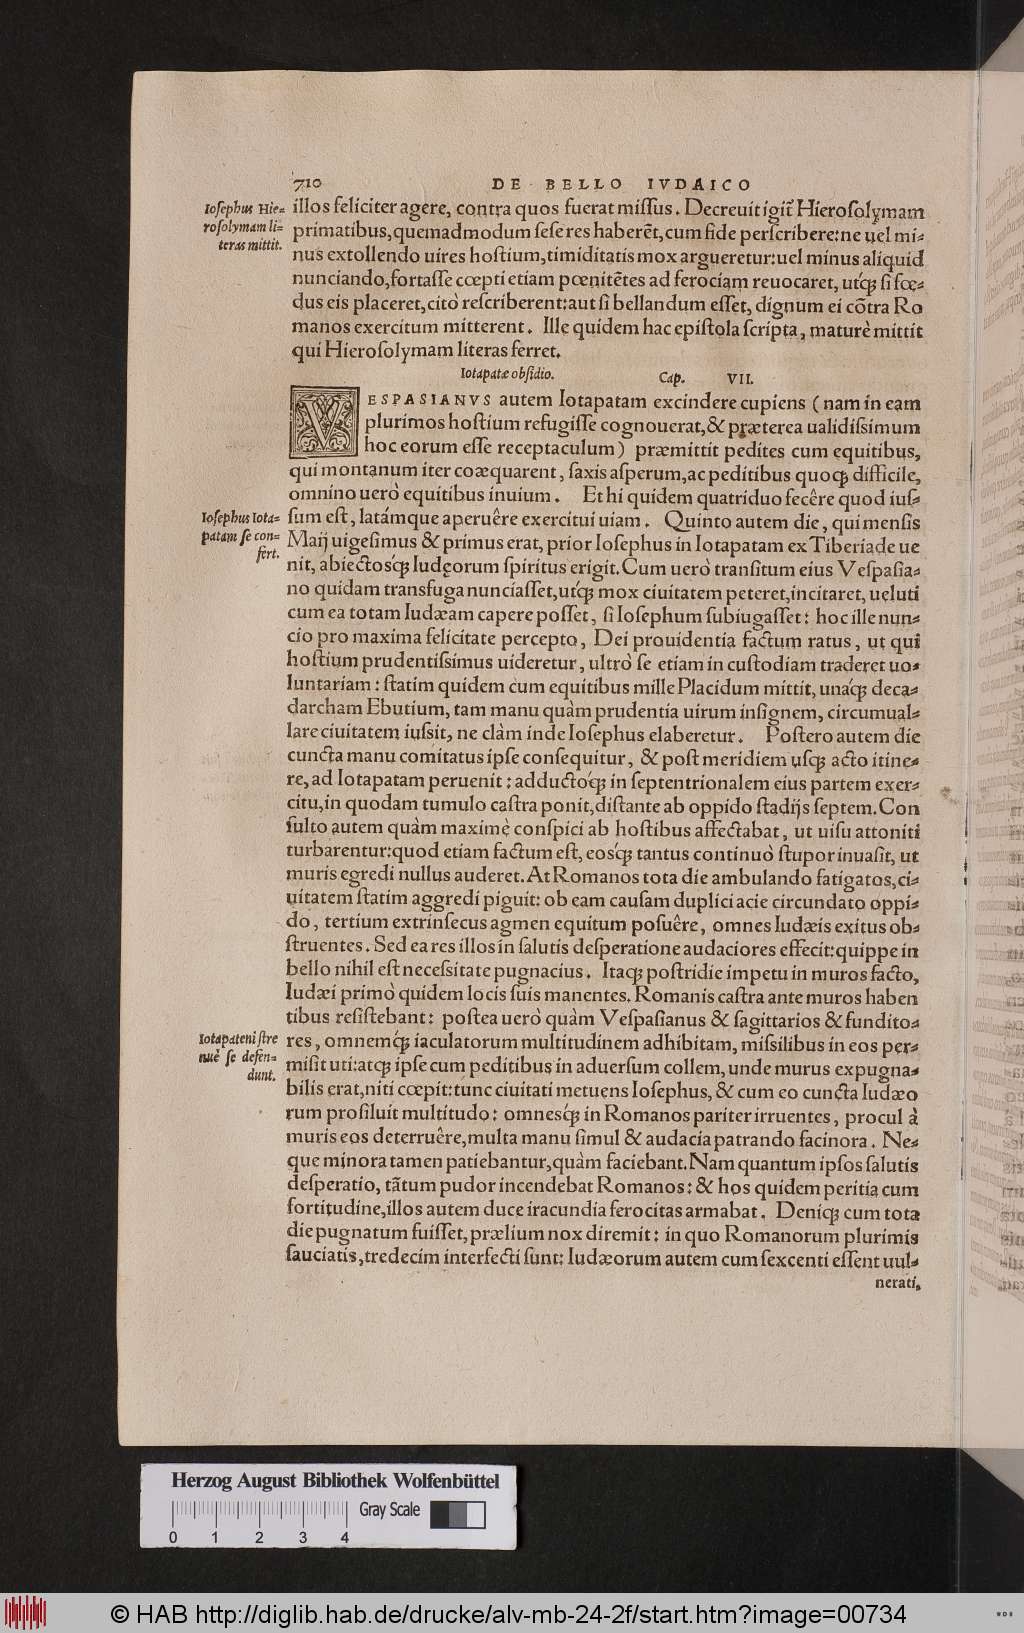 710 DE BELLO IVDAICO
Iosephus Hie-
rosolymam li-
teras mittit.
illos feliciter agere, contra quos fuerat missus. Decreuit igit̃ Hierosolymam
primatibus, quemadmodum sese res haberēt, cum fide perscribere: ne uel mi-
nus extollendo uires hostium, timiditatis mox argueretur: uel minus aliquid
nunciando, fortasse cœpti etiam pœnitētes ad ferociam reuocaret, utq́; si fœ-
dus eis placeret, citò rescriberent: aut si bellandum esset, dignum ei cōtra Ro
manos exercitum mitterent. Ille quidem hac epistola scripta, maturè mittit
qui Hierosolymam literas ferret.
Iotapatæ obsidio. Cap. VII.
VESPASIANVS autem Iotapatam excindere cupiens (nam in eam
plurimos hostium refugisse cognouerat, & præterea ualidissimum
hoc eorum esse receptaculum) præmittit pedites cum equitibus,
qui montanum iter coæquarent, saxis asperum, ac peditibus quoq; difficile,
omnino uerò equitibus inuium. Et hi quidem quatriduo fecêre quod ius-
sum est, latámque aperuêre exercitui uiam. Quinto autem die, qui mensis
Iosephus Iota-
patam se con-
fert.
Maij uigesimus & primus erat, prior Iosephus in Iotapatam ex Tiberiade ue
nit, abiectosq́; Iudęorum spiritus erigit. Cum uerò transitum eius Vespasia-
no quidam transfuga nunciasset, utq́; mox ciuitatem peteret, incitaret, ueluti
cum ea totam Iudæam capere posset, si Iosephum subiugasset: hoc ille nun-
cio pro maxima felicitate percepto, Dei prouidentia factum ratus, ut qui
hostium prudentissimus uideretur, ultrò se etiam in custodiam traderet uo-
luntariam: statim quidem cum equitibus mille Placidum mittit, unaq́; deca-
darcham Ebutium, tam manu quàm prudentia uirum insignem, circumual-
lare ciuitatem iussit, ne clàm inde Iosephus elaberetur. Postero autem die
cuncta manu comitatus ipse consequitur, & post meridiem usq; acto itine-
re, ad Iotapatam peruenit: adductoq́; in septentrionalem eius partem exer-
citu, in quodam tumulo castra ponit, distante ab oppido stadijs septem. Con
sulto autem quàm maximè conspici ab hostibus affectabat, ut uisu attoniti
turbarentur: quod etiam factum est, eosq́; tantus continuò stupor inuasit, ut
muris egredi nullus auderet. At Romanos tota die ambulando fatigatos, ci-
uitatem statim aggredi piguit: ob eam causam duplici acie circundato oppi-
do, tertium extrinsecus agmen equitum posuêre, omnes Iudæis exitus ob-
struentes. Sed ea res illos in salutis desperatione audaciores effecit: quippe in
bello nihil est necessitate pugnacius. Itaq; postridie impetu in muros facto,
Iudæi primò quidem locis suis manentes. Romanis castra ante muros haben
tibus resistebant: postea uerò quàm Vespasianus & sagittarios & fundito-
Iotapateni stre
nuè se defen-
dunt.
res, omnemq́; iaculatorum multitudinem adhibitam, missilibus in eos per-
misit uti: atq; ipse cum peditibus in aduersum collem, unde murus expugna-
bilis erat, niti cœpit: tunc ciuitati metuens Iosephus, & cum eo cuncta Iudæo
rum prosiluit multitudo: omnesq́; in Romanos pariter irruentes, procul à
muris eos deterruêre, multa manu simul & audacia patrando facinora. Ne-
que minora tamen patiebantur, quàm faciebant. Nam quantum ipsos salutis
desperatio, tātum pudor incendebat Romanos: & hos quidem peritia cum
fortitudine, illos autem duce iracundia ferocitas armabat. Deniq; cum tota
die pugnatum fuisset, prælium nox diremit: in quo Romanorum plurimis
sauciatis, tredecim interfecti sunt: Iudæorum autem cum sexcenti essent uul-
nerati,
Herzog August Bibliothek Wolfenbüttel
Gray Scale
0 1 2 3 4
© HAB http://diglib.hab.de/drucke/alv-mb-24-2f/start.htm?image=00734